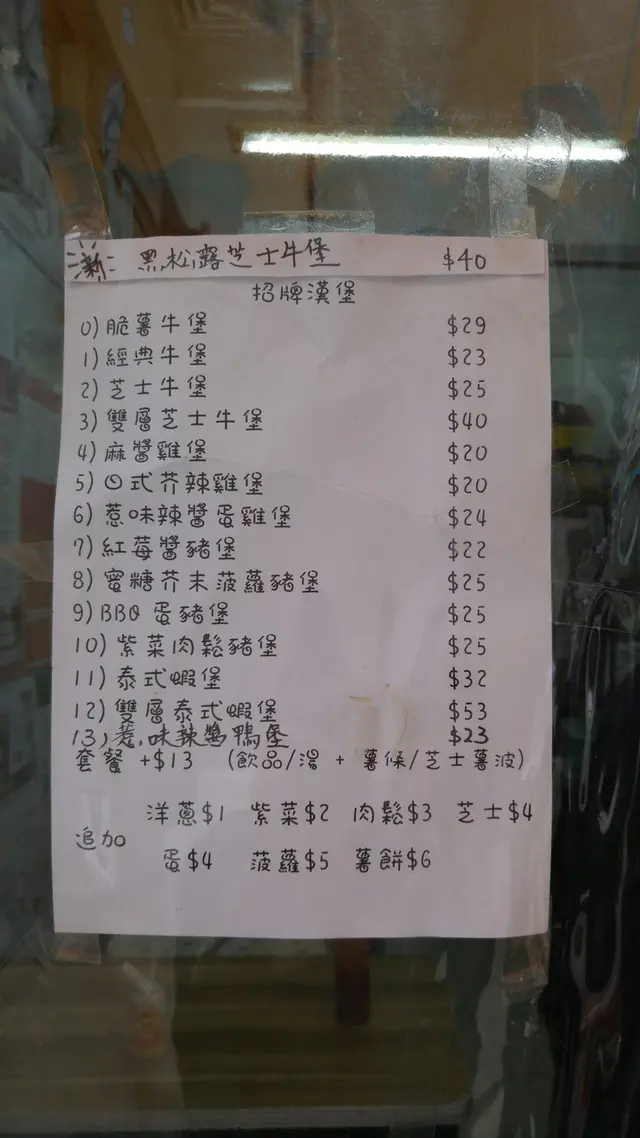 新 黑松露芝士牛堡 $40
招牌漢堡
0) 脆薯牛堡 $29
1) 經典牛堡 $23
2) 芝士牛堡 $25
3) 雙層芝士牛堡 $40
4) 麻醬雞堡 $20
5) 日式芥辣雞堡 $20
6) 惹味辣醬蛋雞堡 $24
7) 紅莓醬豬堡 $22
8) 蜜糖芥末菠蘿豬堡 $25
9) BBQ 蛋豬堡 $25
10) 紫菜肉鬆豬堡 $25
11) 泰式蝦堡 $32
12) 雙層泰式蝦堡 $53
13) 惹味辣醬鴨堡 $23
套餐 +$13 (飲品/湯 + 薯條/芝士薯波)
洋蔥$1 紫菜$2 肉鬆$3 芝士$4
追加
蛋$4 菠蘿$5 薯餅$6